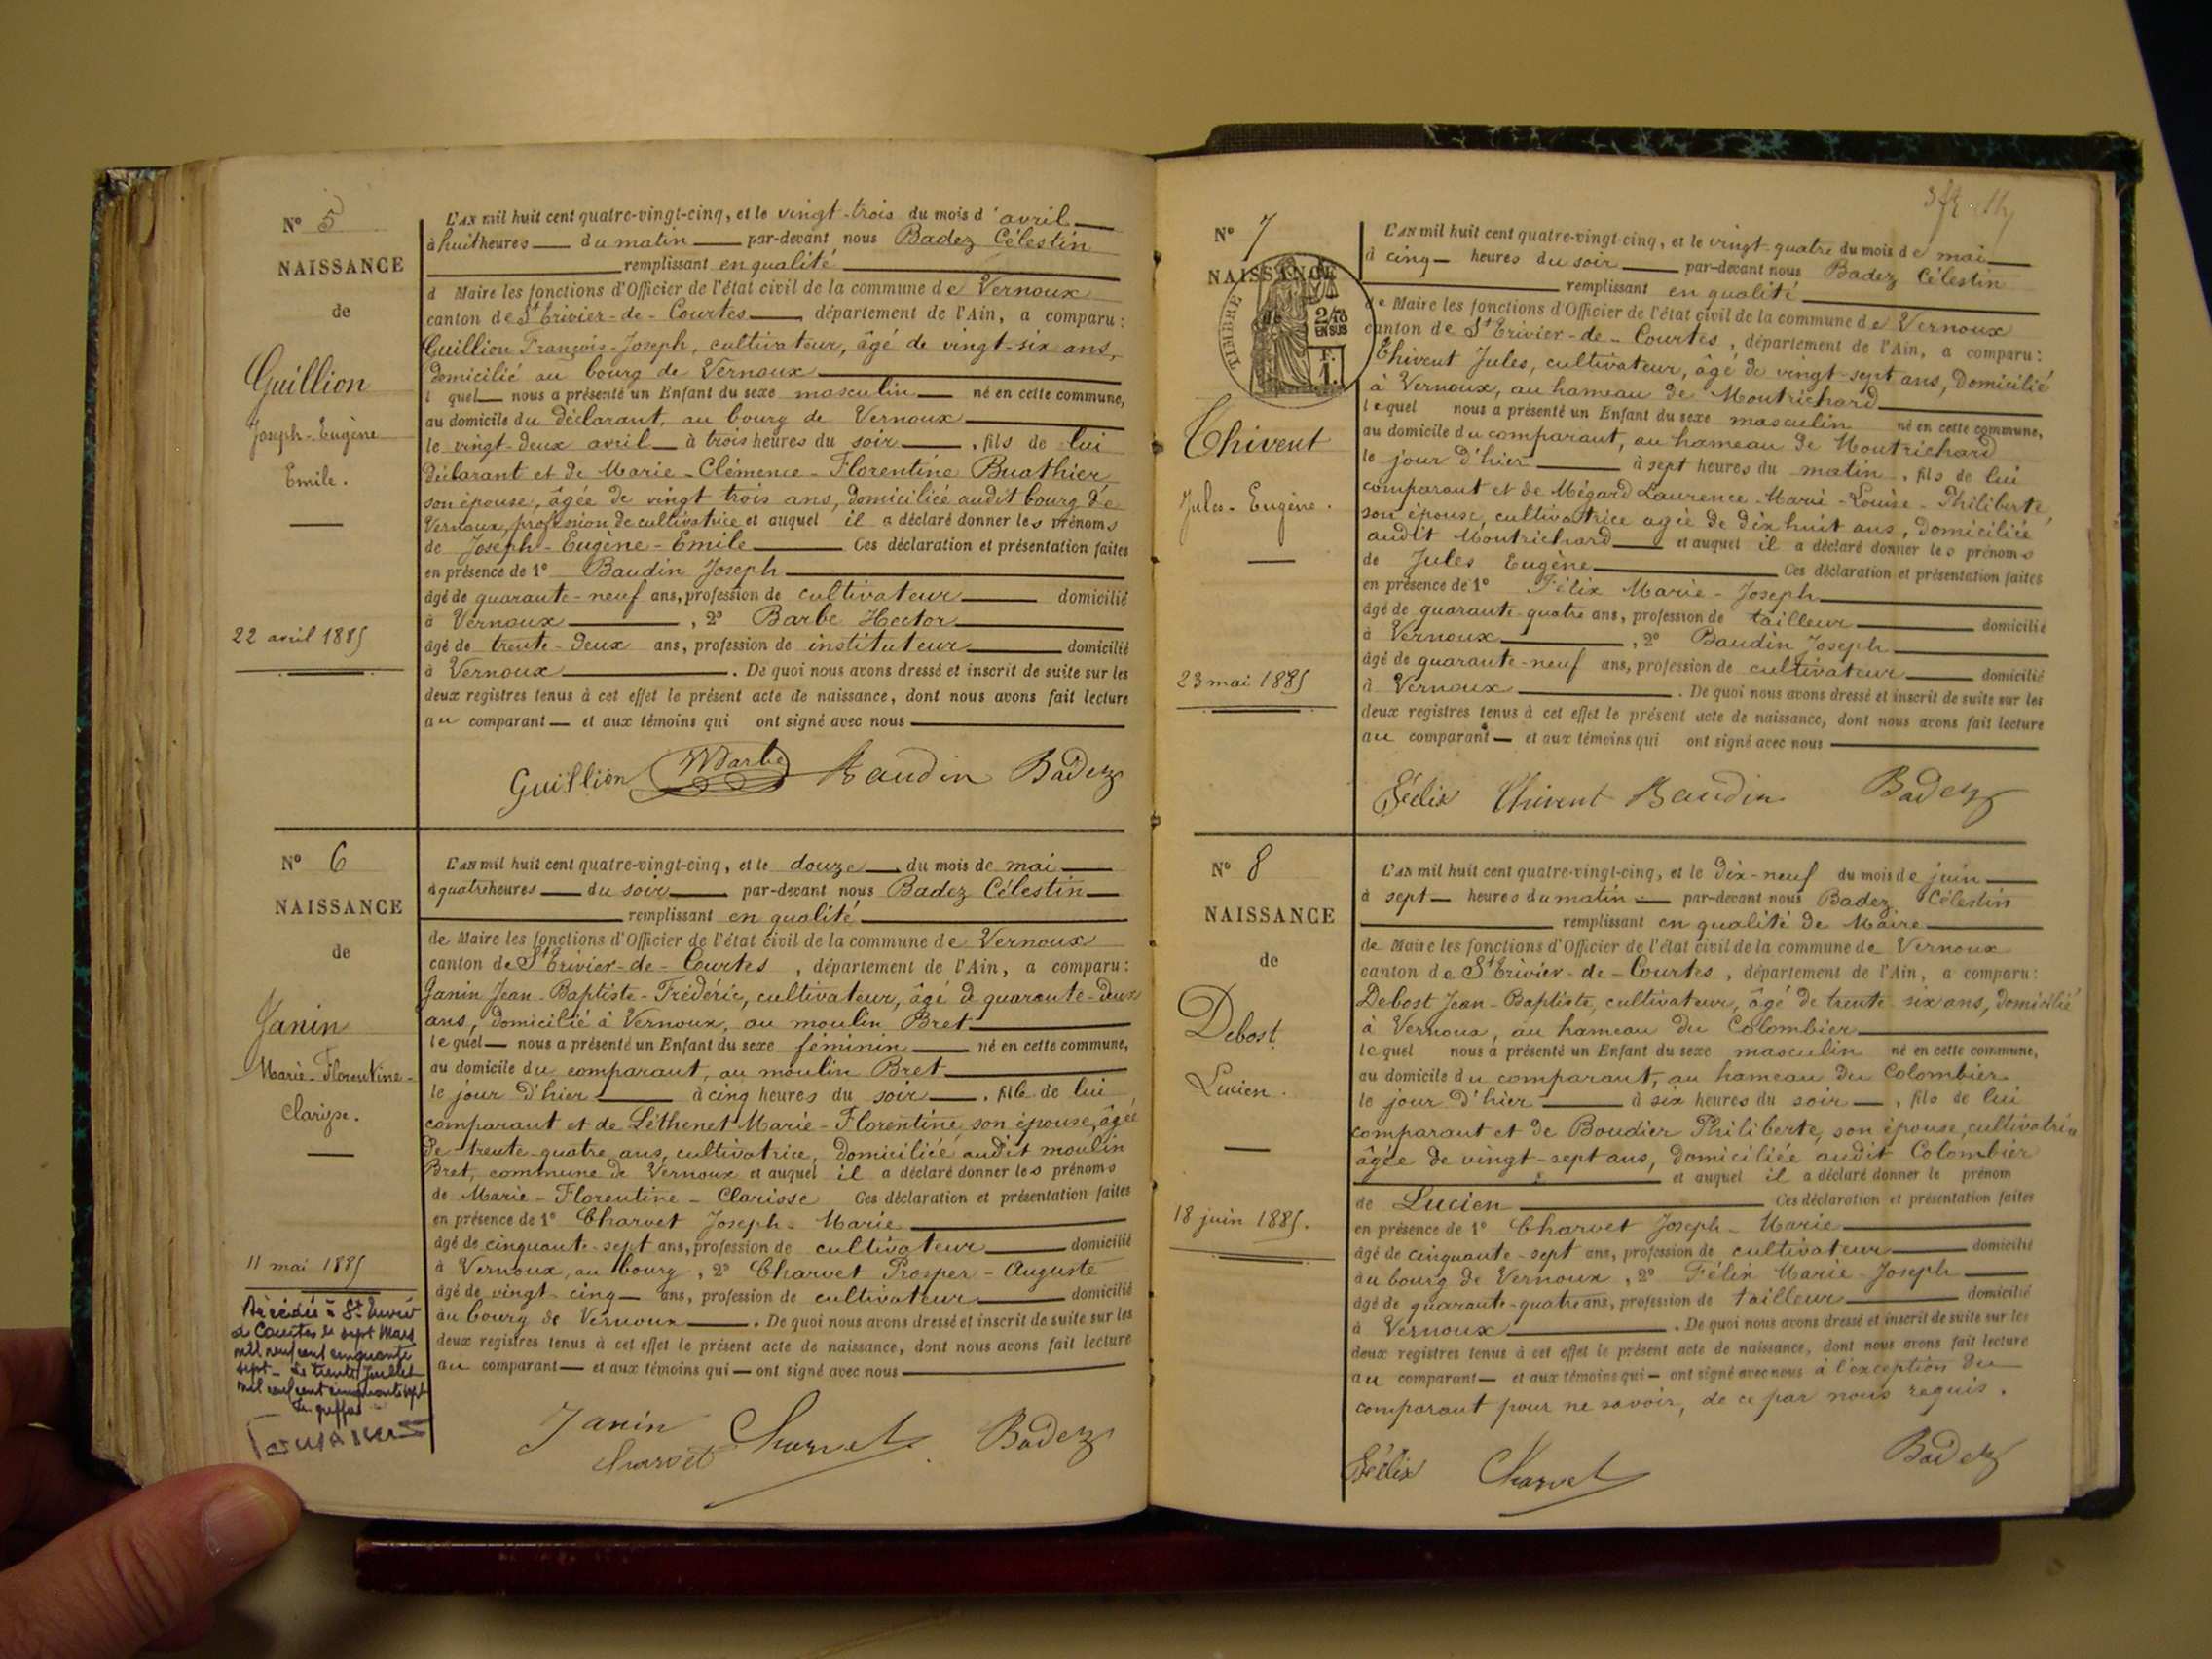 N° 5
NAISSANCE
de
Guillion
Joseph-Eugène
Emile.
22 avril 1885
L'AN mil huit cent quatre-vingt-cinq, et le vingt-trois du mois d'avril
à huit heures du matin par-devant nous Badez Célestin
remplissant en qualité
d Maire les fonctions d'Officier de l'état civil de la commune de Vernoux
canton de St Trivier-de-Courtes, département de l'Ain, a comparu:
Guillion François-Joseph, cultivateur, âgé de vingt-six ans,
domicilié au bourg de Vernoux
l quel nous a présenté un Enfant du sexe masculin né en cette commune,
au domicile du déclarant, au bourg de Vernoux
le vingt-deux avril à trois heures du soir, fils de lui
déclarant et de Marie-Clémence-Florentine Buathier
son épouse, âgée de vingt trois ans, domiciliée audit bourg de
Vernoux, profession de cultivatrice et auquel il a déclaré donner les prénoms
de Joseph-Eugène-Emile Ces déclaration et présentation faites
en présence de 1° Baudin Joseph
âgé de quarante-neuf ans, profession de cultivateur domicilié
à Vernoux, 2° Barbe Hector
âgé de trente-deux ans, profession de instituteur domicilié
à Vernoux. De quoi nous avons dressé et inscrit de suite sur les
deux registres tenus à cet effet le présent acte de naissance, dont nous avons fait lecture
au comparant et aux témoins qui ont signé avec nous
Guillion Barbe Baudin Badez
N° 6
NAISSANCE
de
Janin
Marie-Florentine-
Clarisse.
11 mai 1885
Décédée à St Trivier
de Courtes le sept Mars
mil neuf cent cinquante
sept - Le trente Juillet
mil neuf cent cinquante sept
L'AN mil huit cent quatre-vingt-cinq, et le douze du mois de mai
à quatre heures du soir par-devant nous Badez Célestin
remplissant en qualité
de Maire les fonctions d'Officier de l'état civil de la commune de Vernoux
canton de St Trivier-de-Courtes, département de l'Ain, a comparu:
Janin Jean-Baptiste-Frédéric, cultivateur, âgé de quarante-deux
ans, domicilié à Vernoux, au moulin Bret
lequel nous a présenté un Enfant du sexe féminin né en cette commune,
au domicile du comparant, au moulin Bret
le jour d'hier à cinq heures du soir, fille de lui
comparant et de Léthenet Marie-Florentine, son épouse, âgée
de trente-quatre ans, cultivatrice, domiciliée audit moulin
Bret, commune de Vernoux et auquel il a déclaré donner les prénoms
de Marie-Florentine-Clarisse Ces déclaration et présentation faites
en présence de 1° Charvet Joseph-Marie
âgé de cinquante-sept ans, profession de cultivateur domicilié
à Vernoux, au bourg, 2° Charvet Prosper-Auguste
âgé de vingt-cinq ans, profession de cultivateur domicilié
au bourg de Vernoux. De quoi nous avons dressé et inscrit de suite sur les
deux registres tenus à cet effet le présent acte de naissance, dont nous avons fait lecture
au comparant et aux témoins qui ont signé avec nous
Janin Charvet Badez
Charvet
N° 7
NAISSANCE
TIMBRE
2/10
EN SUS
Thivent
Jules-Eugène.
23 mai 1885
L'AN mil huit cent quatre-vingt-cinq, et le vingt-quatre du mois de mai
à cinq heures du soir par-devant nous Badez Célestin
remplissant en qualité
de Maire les fonctions d'Officier de l'état civil de la commune de Vernoux
canton de St Trivier-de-Courtes, département de l'Ain, a comparu:
Thivent Jules, cultivateur, âgé de vingt-sept ans, domicilié
à Vernoux, au hameau de Montrichard
lequel nous a présenté un Enfant du sexe masculin né en cette commune,
au domicile du comparant, au hameau de Montrichard
le jour d'hier à sept heures du matin, fils de lui
comparant et de Mégard Laurence-Marie-Louise-Philiberte,
son épouse, cultivatrice agée de dix huit ans, domiciliée
audit Montrichard et auquel il a déclaré donner les prénoms
de Jules Eugène Ces déclaration et présentation faites
en présence de 1° Félix Marie-Joseph
âgé de quarante-quatre ans, profession de tailleur domicilié
à Vernoux, 2° Baudin Joseph
âgé de quarante-neuf ans, profession de cultivateur domicilié
à Vernoux. De quoi nous avons dressé et inscrit de suite sur les
deux registres tenus à cet effet le présent acte de naissance, dont nous avons fait lecture
au comparant et aux témoins qui ont signé avec nous
Félix Thivent Baudin Badez
N° 8
NAISSANCE
de
Debost
Lucien.
18 juin 1885.
L'AN mil huit cent quatre-vingt-cinq, et le dix-neuf du mois de juin
à sept heures du matin par-devant nous Badez Célestin
remplissant en qualité de Maire
de Maire les fonctions d'Officier de l'état civil de la commune de Vernoux
canton de St Trivier-de-Courtes, département de l'Ain, a comparu:
Debost Jean-Baptiste, cultivateur, âgé de trente-six ans, domicilié
à Vernoux, au hameau du Colombier
lequel nous a présenté un Enfant du sexe masculin né en cette commune,
au domicile du comparant, au hameau du Colombier
le jour d'hier à six heures du soir, fils de lui
comparant et de Boudier Philiberte, son épouse, cultivatrice
âgée de vingt-sept ans, domiciliée audit Colombier
et auquel il a déclaré donner le prénom
de Lucien Ces déclaration et présentation faites
en présence de 1° Charvet Joseph-Marie
âgé de cinquante-sept ans, profession de cultivateur domicilié
au bourg de Vernoux, 2° Félix Marie-Joseph
âgé de quarante-quatre ans, profession de tailleur domicilié
à Vernoux. De quoi nous avons dressé et inscrit de suite sur les
deux registres tenus à cet effet le présent acte de naissance, dont nous avons fait lecture
au comparant et aux témoins qui ont signé avec nous à l'exception du
comparant pour ne savoir, de ce par nous requis.
Félix Charvet Badez